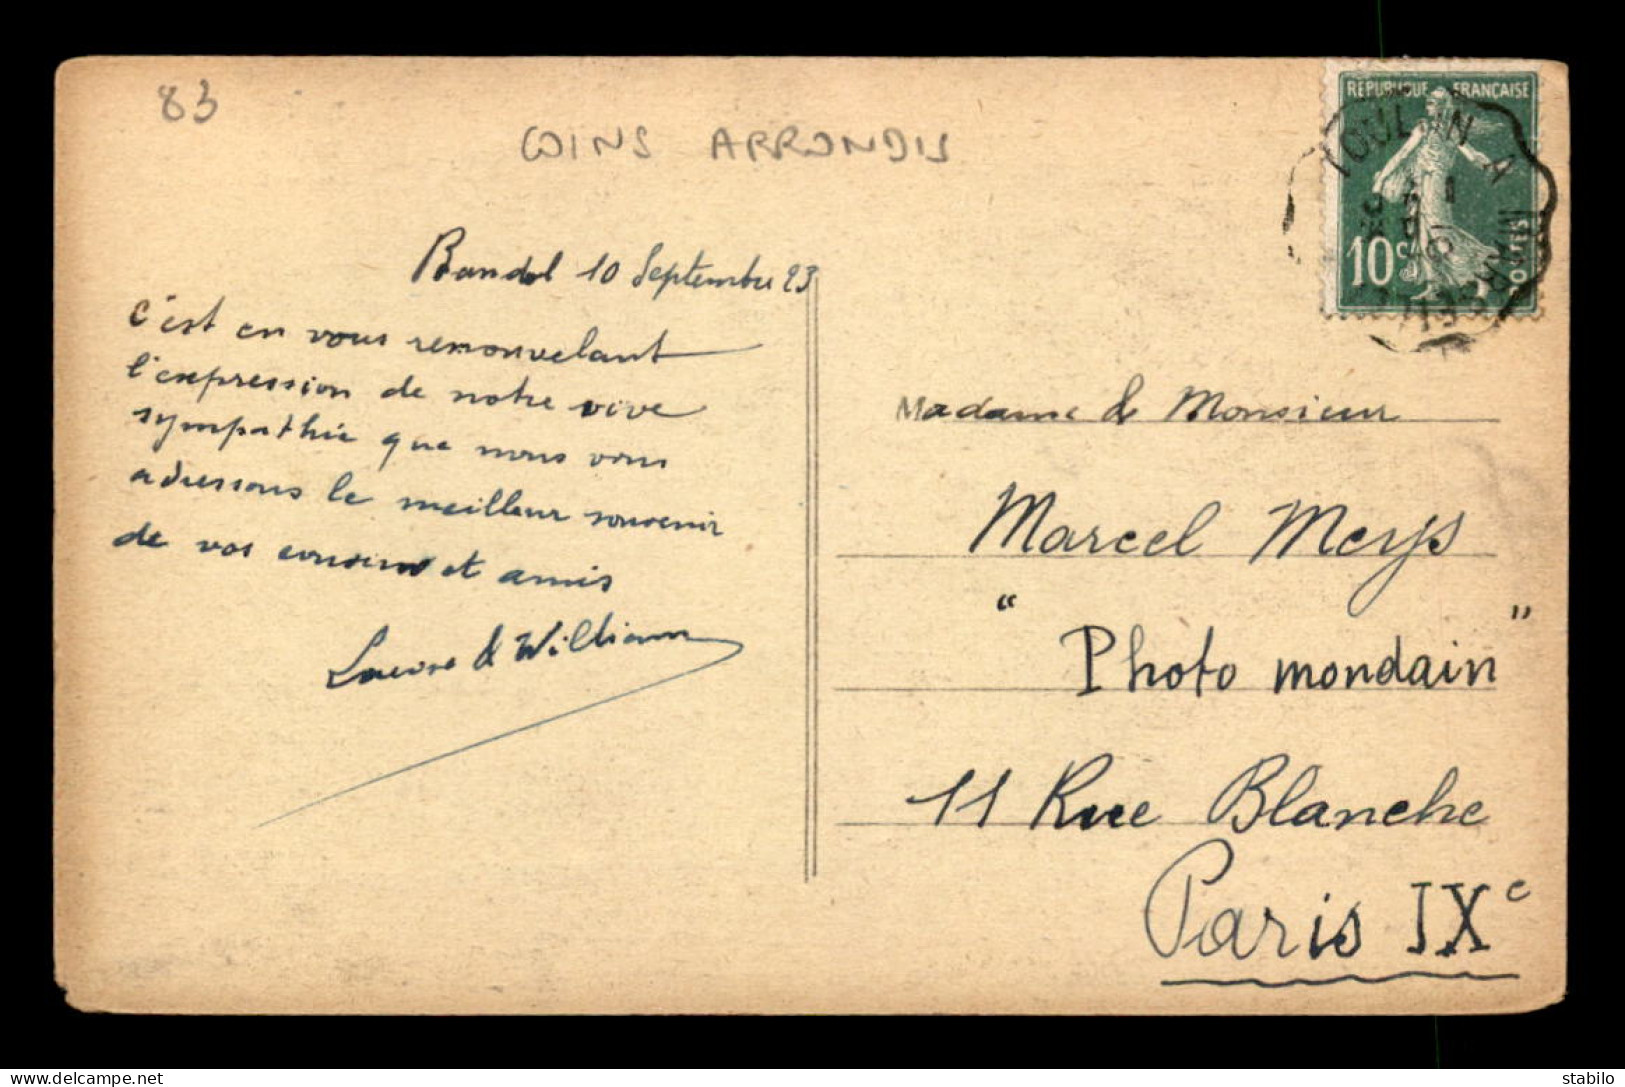 83
COINS ARRONDIS
RÉPUBLIQUE FRANÇAISE
10c
POSTES
TOULON A MARSEILLE
Bandol 10 Septembre 23
c'est en vous renouvelant
l'expression de notre vive
sympathie que nous vous
adressons le meilleur souvenir
de vos cousins et amis
& William
Madame & Monsieur
Marcel Meys
" Photo mondain "
11 Rue Blanche
Paris IXe
delcampe.net
stabilo